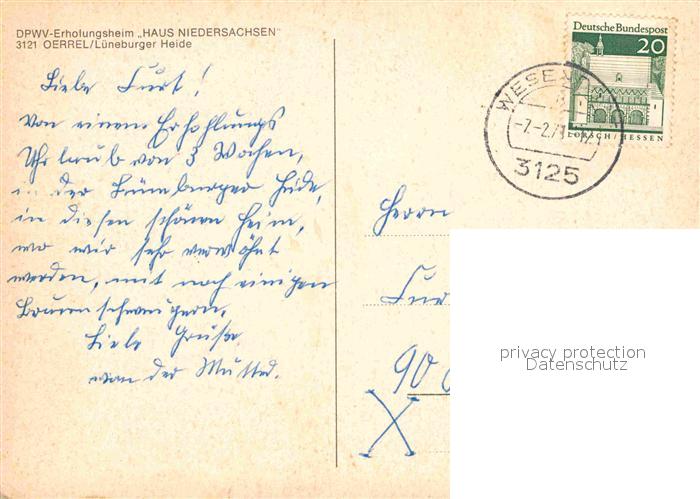 DPWV-Erholungsheim „HAUS NIEDERSACHSEN"
3121 OERREL/Lüneburger Heide
Liebe Curt!
Von einem Erhohlungs
Uhrlaub von 3 Wochen,
in der Lüneburger Heide,
in diesen schönen Heim,
wo wir sehr verwöhnt
werden, mit noch einigen
Braunschweigern.
Liebe Grüße
von der Mutter.
Deutsche Bundespost
20
LORSCH/HESSEN
WESEN
-7.-2.71
3125
Herrn
Cur
90
privacy protection
Datenschutz